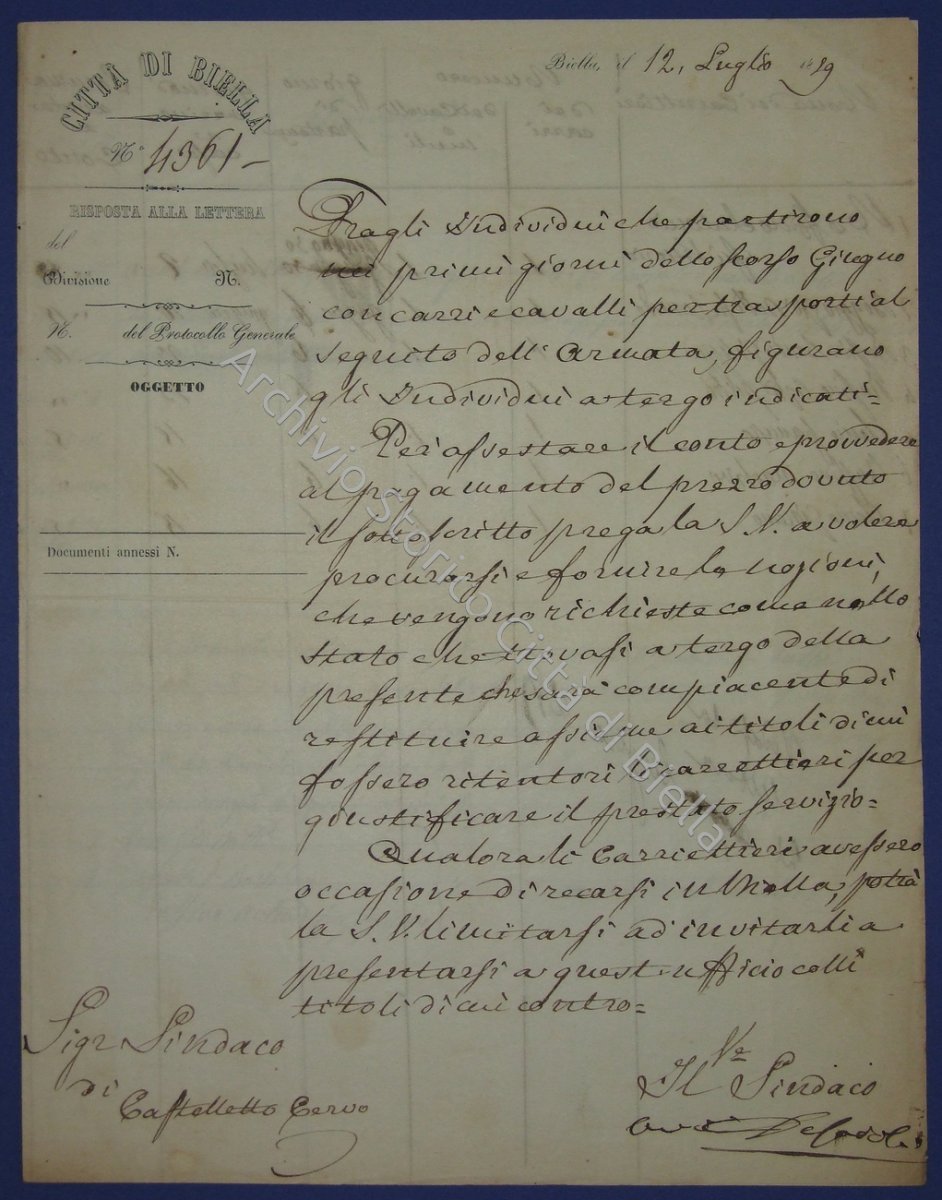 CITTÀ DI BIELLA
N.° 4361 –
RISPOSTA ALLA LETTERA
del
Divisione N.
N. del Protocollo Generale
OGGETTO
Documenti annessi N.
Biella, il 12, Luglio 1859
Fragli Individui che partirono
nei primi giorni dello scorso Giugno
con carri e cavalli per trasporti al
seguito dell'Armata, figurano
gli Individui a tergo indicati=
Per assestare il conto e provvedere
al pagamento del prezzo dovuto
il sottoscritto prega la S.V. a volere
procurarsi e fornire le nozioni,
che vengono richieste come nello
stato che trovasi a tergo della
presente che sarà compiacente di
restituire assieme ai titoli di cui
fossero ritentori li carrettieri per
giustificare il prestato servizio=
Qualora li Carrettieri avessero
occasione di recarsi in Biella, potrà
la S.V. limitarsi ad invitarli a
presentarsi a quest'ufficio colli
titoli di cui contro=
Sigr Sindaco
di
Castelletto Cervo
Il Ve Sindaco
Archivio Storico Città di Biella